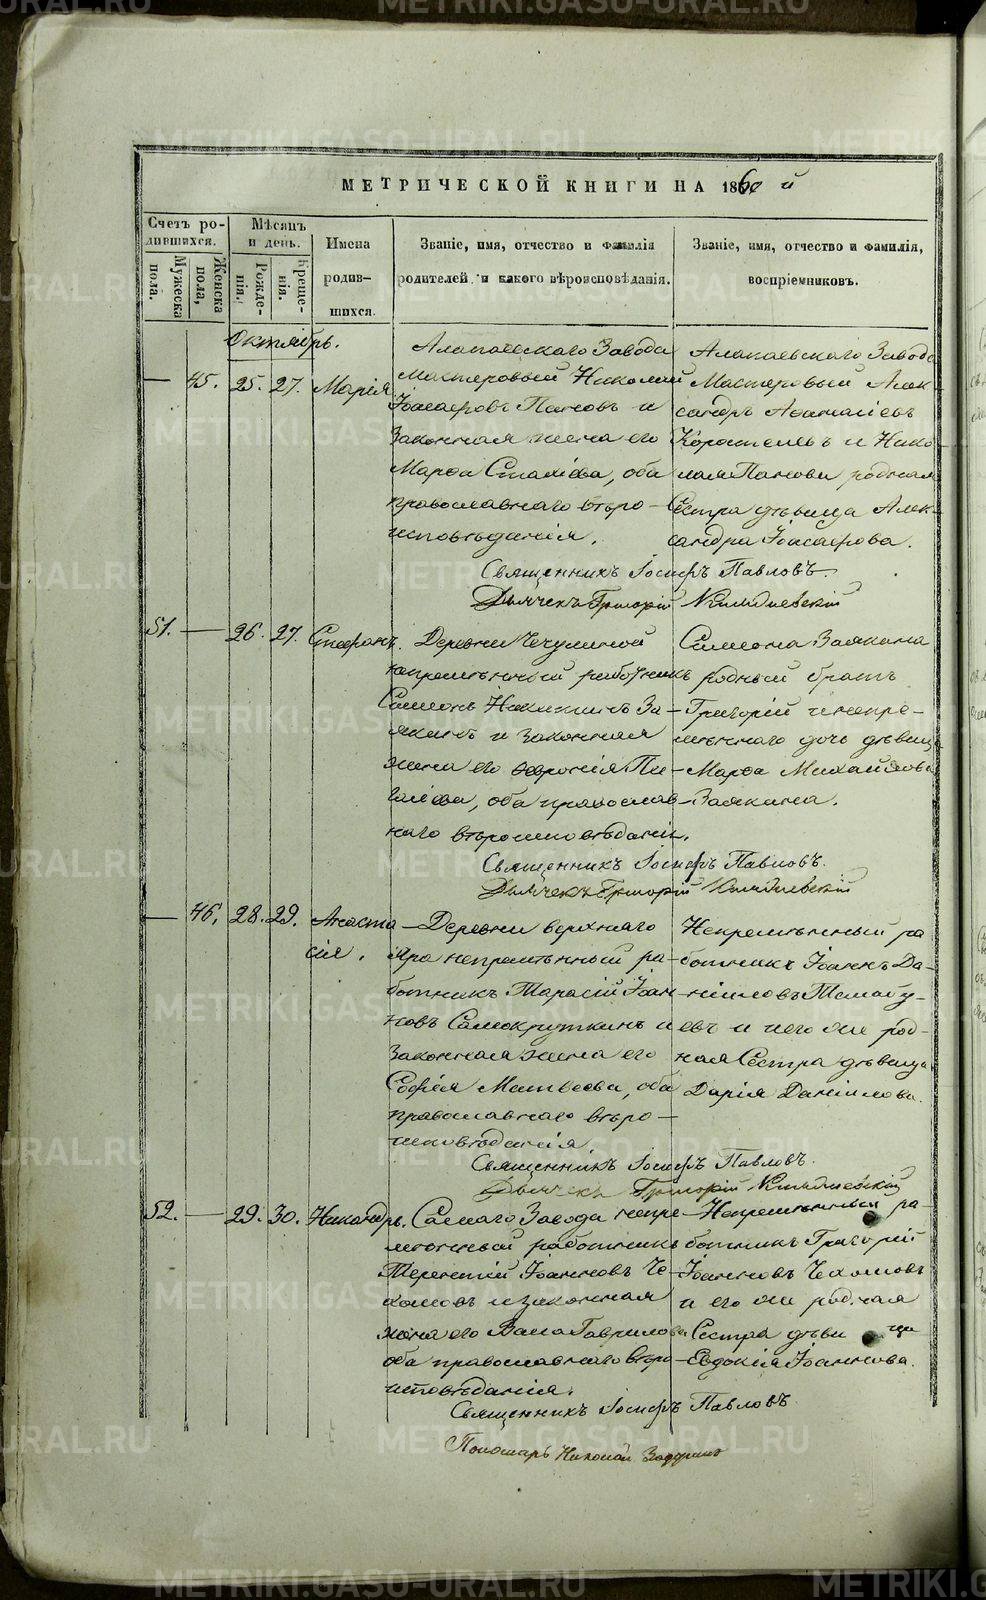 МЕТРИЧЕСКОЙ КНИГИ НА 1860 й
Счетъ ро-
дившихся.
Мужеска
пола.
Женска
пола,
Мѣсяцъ
и день.
Рожде-
нія.
Креще-
нія.
Имена
родив-
шихся.
Званіе, имя, отчество и фамилія
родителей, и какого вѣроисповѣданія.
Званіе, имя, отчество и фамилія,
воспріемниковъ.
Октябрь.
— 45. 25. 27. Марія.
Алапаевскаго Завода
Мастеровый Николай
Іоасафовъ Пановъ и
Законная жена его
Марѳа, оба
православнаго вѣро-
исповѣданія.
Алапаевскаго Завода
Мастеровый Алек-
сандръ Аѳанасіевъ
и Нико-
лая Панова родная
Сестра дѣвица Алек-
сандра Іоасафова.
Священникъ Іосифъ Павловъ.
Дьячекъ Григорій
51. — 26. 27. Стефанъ.
Деревни Чечулиной
непремѣнный работникъ
Симеонъ Никитинъ За-
якинъ и законная
жена его Февронія Пи-
, оба православ-
наго вѣроисповѣданія.
Симеона Заякина
родный братъ
Григорій и непре-
мѣннаго дочь дѣвица
Марѳа Михайлова
Заякина.
Священникъ Іосифъ Павловъ.
Дьячекъ Григорій
— 46. 28. 29. Анаста-
сія.
Деревни верхняго
Яра непремѣнный ра-
ботникъ Тарасій Іоан-
новъ Самокруткинъ и
Законная жена его
Софія Матвеева, оба
православнаго вѣро-
исповѣданія
Непремѣнный ра-
ботникъ Іоаннъ Да-
ніиловъ
и его же род-
ная Сестра дѣвица
Дарія Даніилова.
Священникъ Іосифъ Павловъ.
Дьячекъ Григорій
52. — 29. 30. Никандръ.
Самаго Завода непре-
мѣнный работникъ
Терентій Іоанновъ Че-
хомовъ и законная
жена его Васса Гаврилова
оба православнаго вѣро-
исповѣданія.
Непремѣнный ра-
ботникъ Григорій
Іоанновъ Чехомовъ
и его же родная
Сестра дѣвица
Евдокія Іоаннова.
Священникъ Іосифъ Павловъ
Пономарь Николай